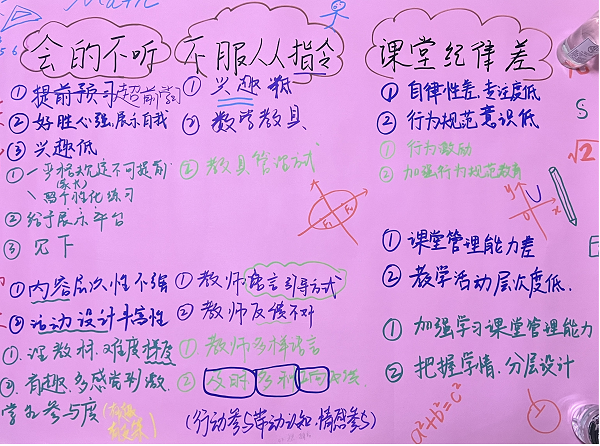 Math
会的不听
不服从人指令
课堂纪律差
①提前预习超前学习
②好胜心强,展示自我
③兴趣低
②给予展示平台
③见下
①内容层次性不强
②活动设计丰富性
②有趣、多感官刺激
学生参与度
①兴趣低
②数学教具
②教具管理方式
①教师语言引导方式
②教师反馈不对
①教师多样语言
(行动参与带动认知、情感参与)
①自律性差,专注度低
②行为规范意识低
①行为激励
②加强行为规范教育
①课堂管理能力差
②教学活动层次度低.
①加强学习课堂管理能力
②把握学情、分层设计
F₁ F₂
y
x
0
S
√2
a²+b²=c²